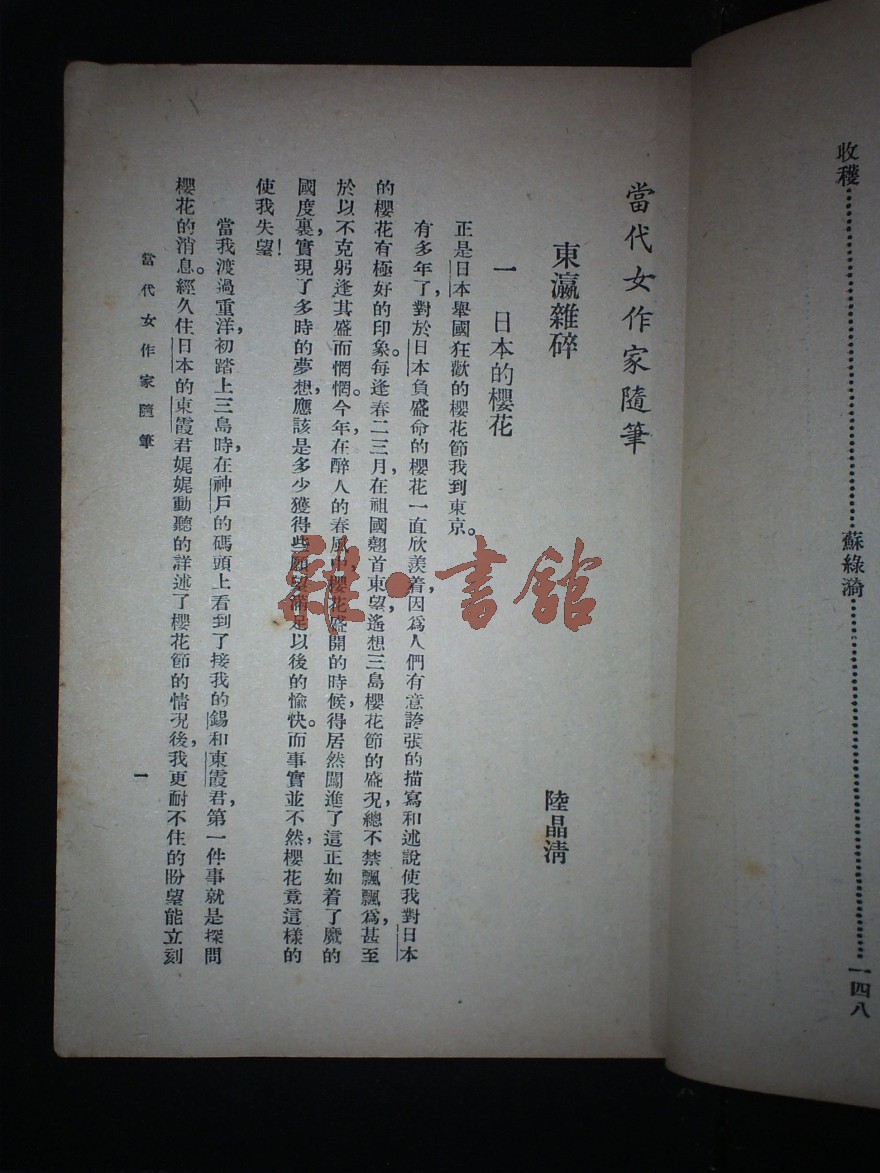 收穫……………………蘇綠漪……………………一四八
當代女作家隨筆
東瀛雜碎
陸晶淸
一 日本的櫻花
正是日本舉國狂歡的櫻花節我到東京。
有多年了，對於日本負盛命的櫻花一直欣羨着，因爲人們有意誇張的描寫和述說使我對日本
的櫻花有極好的印象。每逢春二三月，在祖國翹首東望，遙想三島櫻花節的盛況，總不禁飄飄爲，甚至
於以不克躬逢其盛而惘惘。今年在醉人的春風中，櫻花盛開的時候，得居然闖進了這正如着了魔的
國度裏，實現了多時的夢想，應該是多少獲得些願望滿足以後的愉快。而事實並不然，櫻花竟這樣的
使我失望！
當我渡過重洋，初踏上三島時，在神戶的碼頭上看到了接我的錫和東霞君，第一件事就是探問
櫻花的消息。經久住日本的東霞君娓娓動聽的詳述了櫻花節的情况後，我更耐不住的盼望能立刻
當代女作家隨筆
一
雜·書館